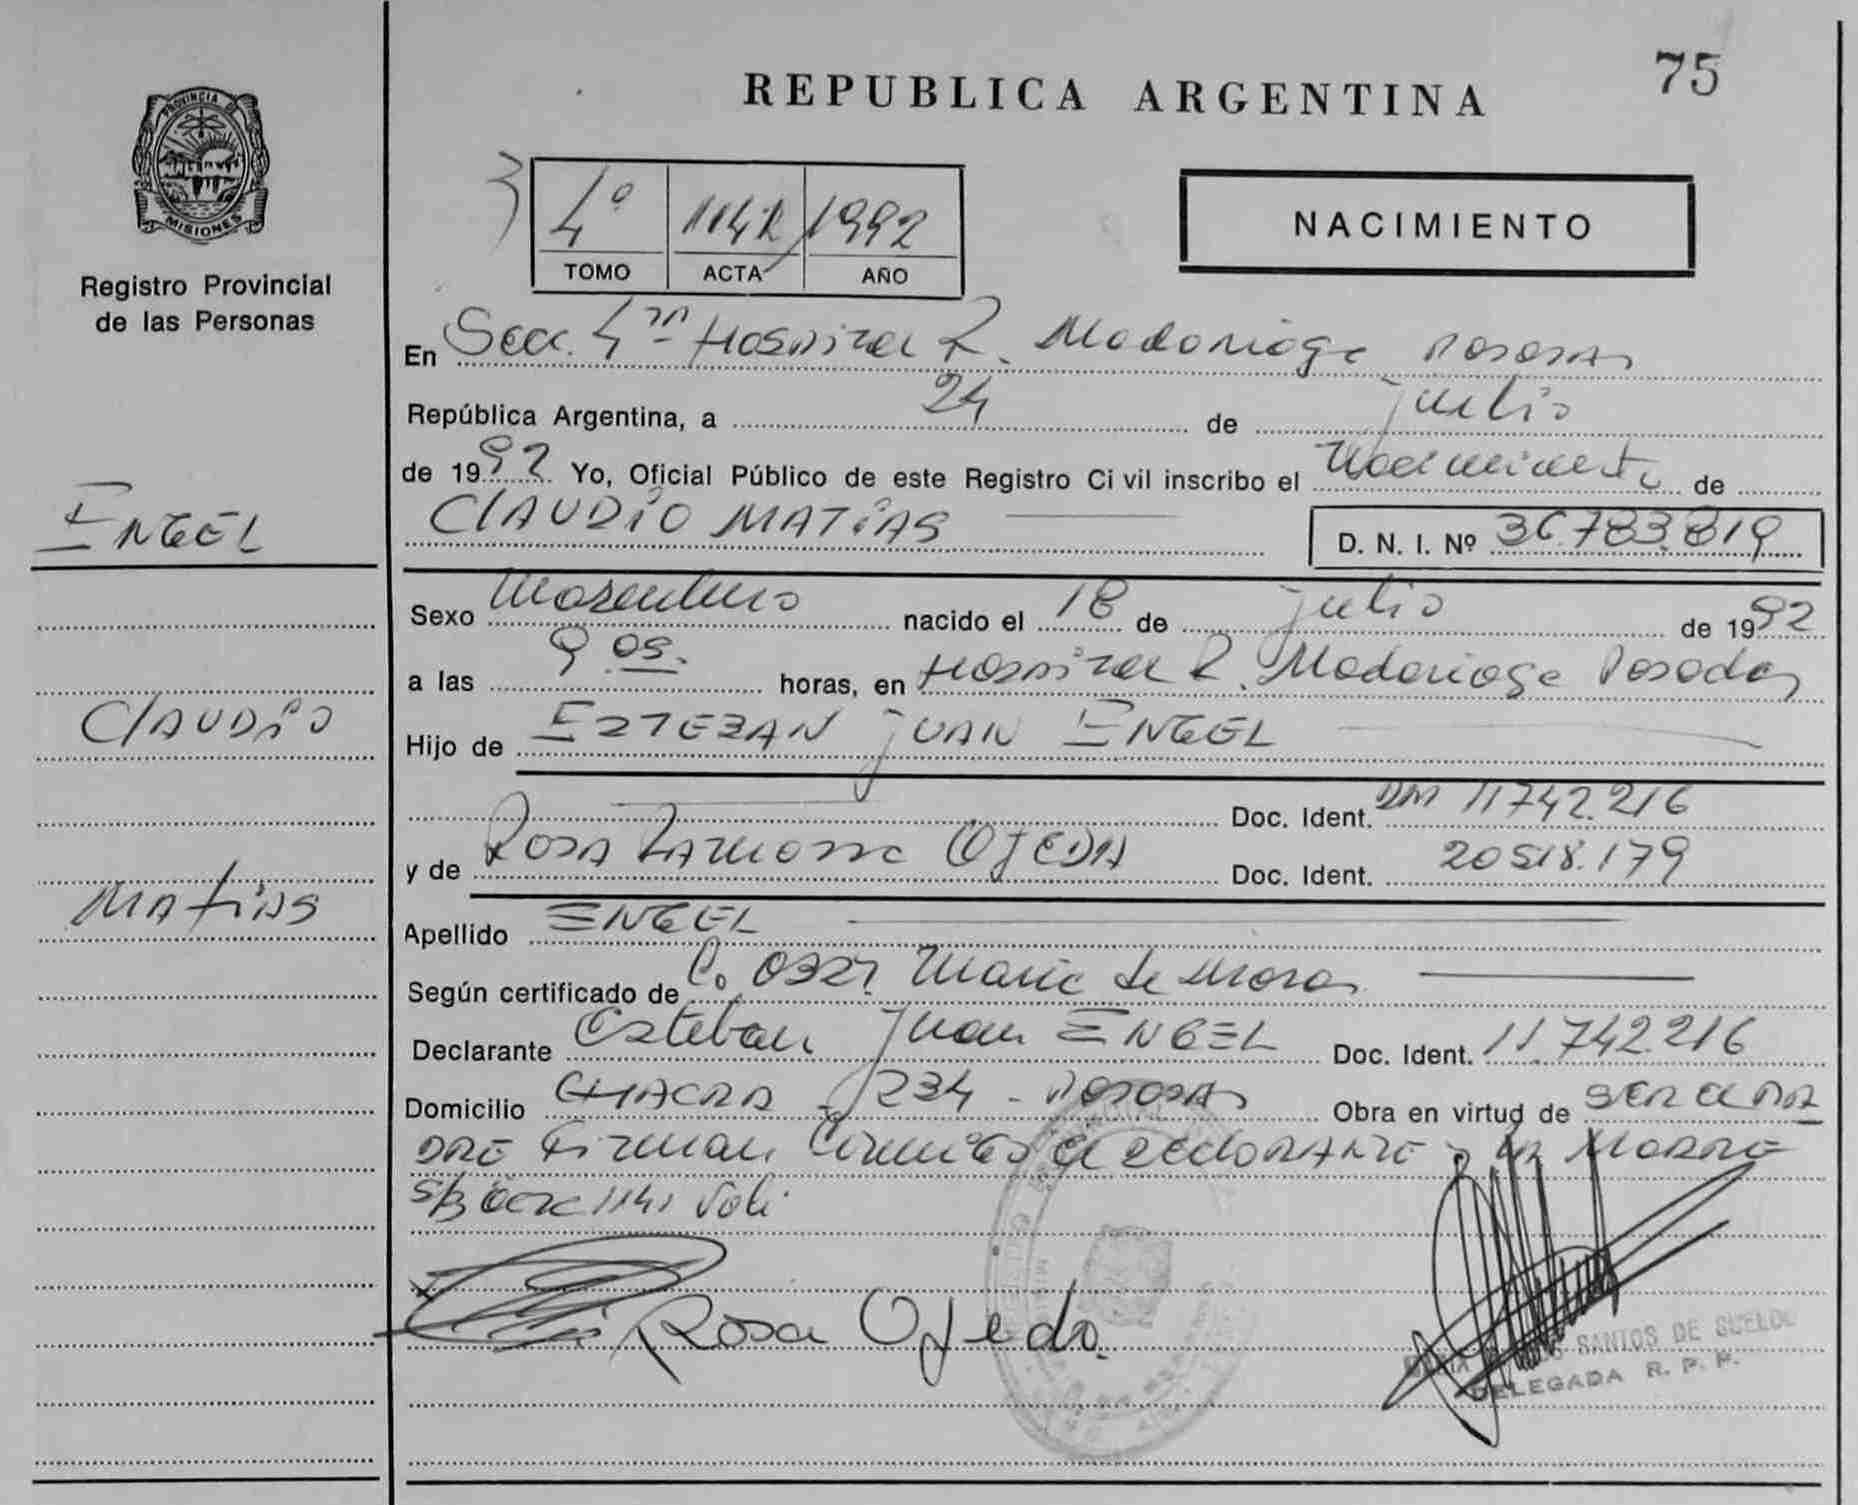 75
REPUBLICA ARGENTINA
PROVINCIA D
MISIONES
Registro Provincial
de las Personas
4º 1142 1992
TOMO ACTA AÑO
NACIMIENTO
En Secc. 4ta Hospital R. Madariaga Posadas
República Argentina, a 24 de julio
de 1992 Yo, Oficial Público de este Registro Ci vil inscribo el Nacimiento de
ENGEL
CLAUDIO MATIAS
D. N. I. Nº 36.783.819
Sexo Masculino nacido el 18 de julio de 1992
a las 9 05. horas, en Hospital R. Madariaga Posadas
CLAUDIO
Hijo de ESTEBAN JUAN ENGEL
Doc. Ident. DNI 11742.216
y de ROSA RAMONA OJEDA Doc. Ident. 20518.179
MATIAS
Apellido ENGEL
Según certificado de
Declarante Esteban Juan ENGEL Doc. Ident. 11.742.216
Domicilio CHACRA 234 - POSADAS Obra en virtud de ser el PA
DRE Firman el declorante y la MADRE
1141 Vale
Rosa Ojeda.
SANTOS DE SUELDO
DELEGADA R. P. P.